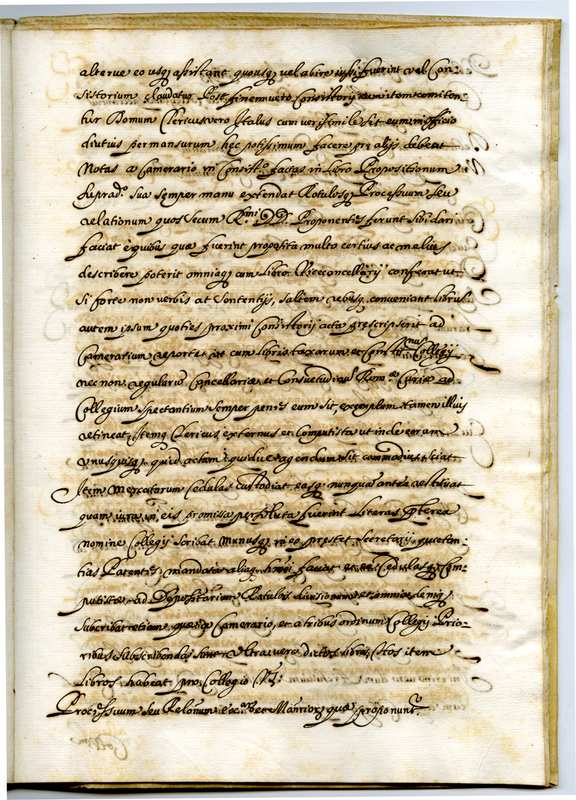 alterue eo usq; assistant quousq; uel abire iussi fuerint uel Con-
sistorium claudatur Post finem uero Consistorij eum item comiten
tur Domum Clericus uero Italus cum uerisimile sit eum in officio
diutius permansurum, hec potissimum facere pre alijs debeat
Notas a Camerario in Consist.o factas in Libro Propositionum
suprad.o sua semper manu extendat Rotulosq; Processuum seu
relationum quos secum R.mi DD. Proponentes ferunt sibi dari
faciat e quibus quae fuerint proposita multo certius ac melius
describere poterit omniaq; cum libro Vicecancellarij conferat ut
si forte non uerbis at sententijs, saltem rebusq. conueniant librum
autem ipsum quoties proximi Consistorij acta prescripserit ad
Camerarium reportet ut cum libris taxarum, et Constit.num Collegij
nec non regularum Cancellariae et Consuetudinum Rom.ae Curiae ad
Collegium spectantium semper penes eum sit, exemplum tamen illius
retineat, itemq; Clericus externus et Computista ut inde eorum
unusquisq; quid actum quidue agendum sit commodius sciat
Item Mercatorum cedulas custodiat easq; nunquam antea restituat
quam iura in eis promissa persoluta fuerint literas preterea
nomine Collegij scribat Munusq; in eo prestet Secretarij, quietan-
tias Patentes, mandata aliaq; faciat et Cedulas Com-
putistae ad Depositarium Rotulos diuisionum et omnia demq;
subscribat etiam, quaeq; Camerario, et a tribus ordinum Collegij Prio-
ribus subscribenda sunt Ultra uero dictos libros, hos item
Libros habeat pro Collegio
Processuum seu Relationum quae proponunt.r